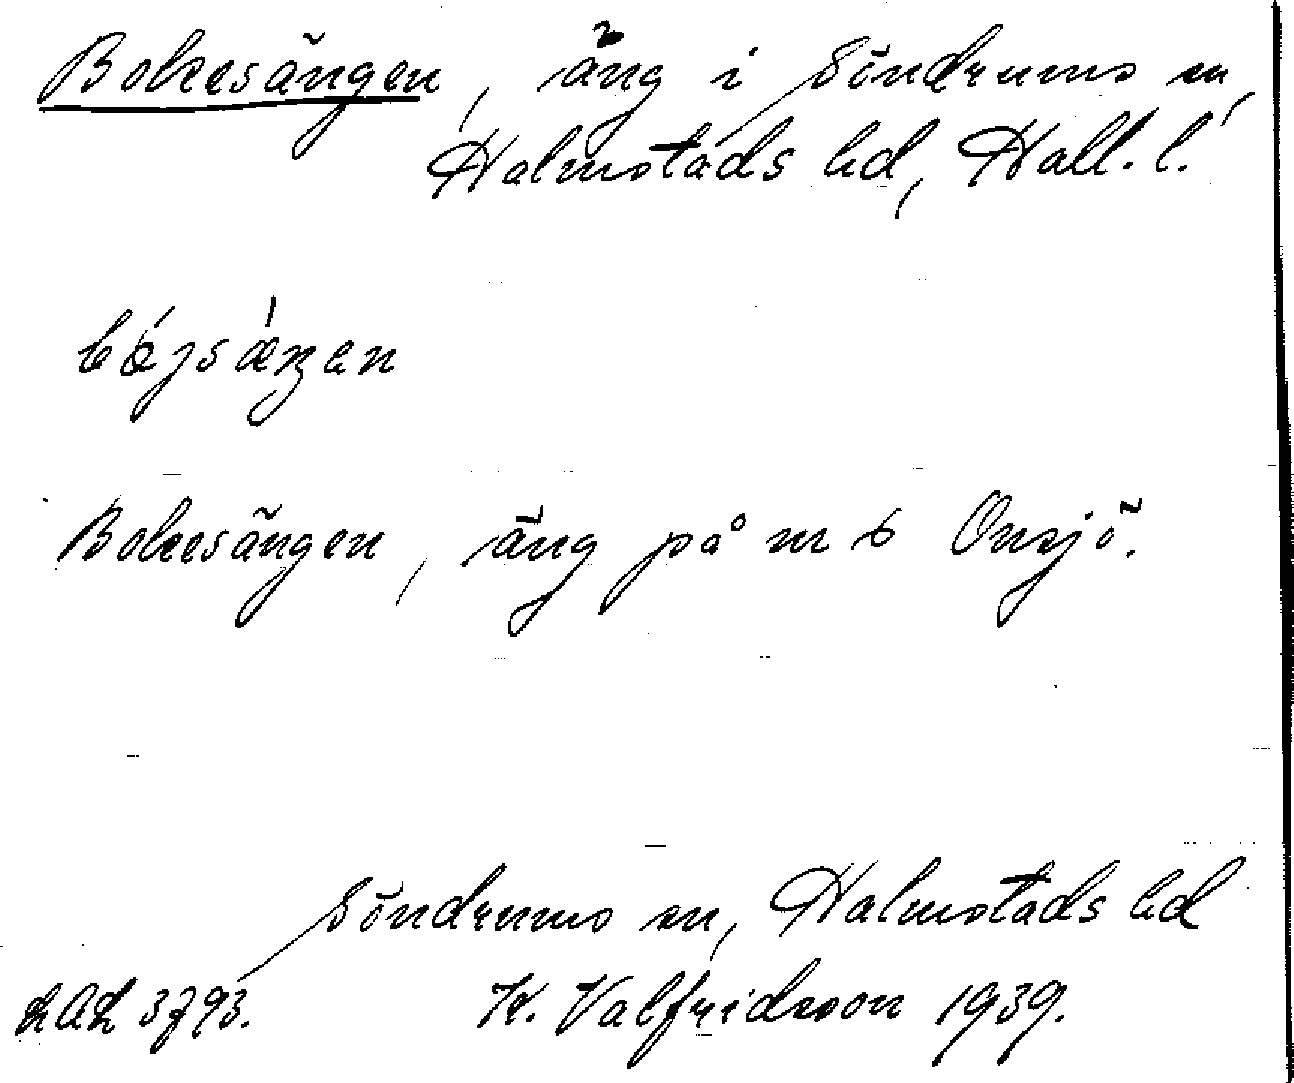 Bokesängen, äng i Söndrums sn,
Halmstads hd, Hall. l.
Bokesängen, äng på nr 6 Onsjö.
Söndrums sn, Halmstads hd
K. Valfridsson 1939.